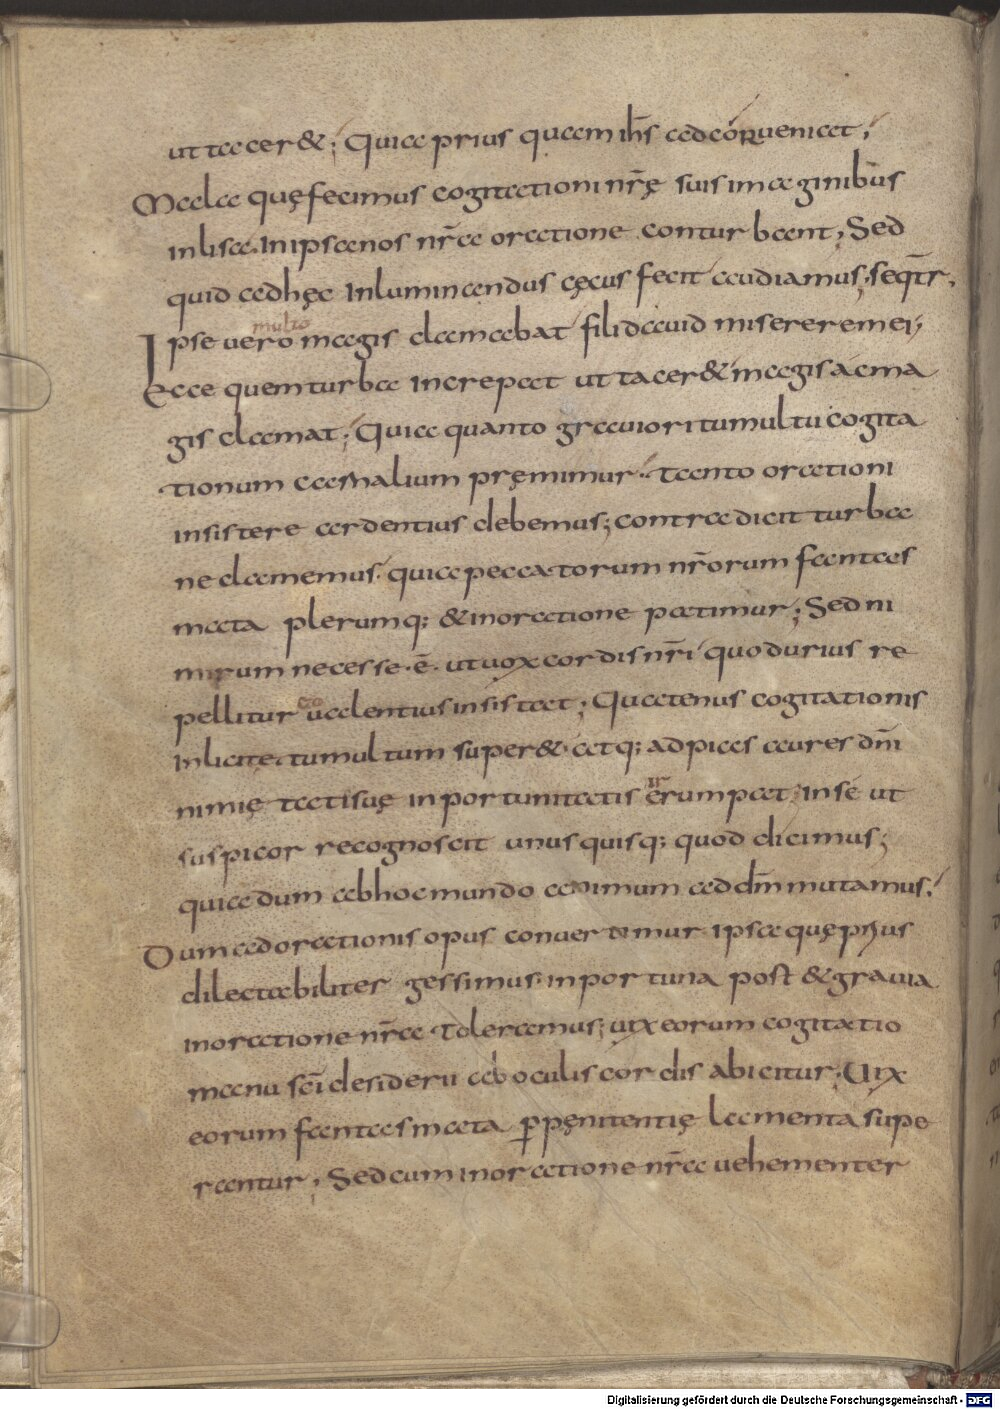 ut tacer&; Quia prius quam ihs ad cor uenieat;
Mala quę fecimus cogitationi nr̄ę suis imaginibus
inlisa. In ipsa nos nr̄a oratione conturbant; Sed
quid adhęc inluminandus cęcus fecit audiamus; seqt̄r.
multo
Ipse uero magis clamabat fili dauid miserere mei;
Ecce quem turba increpat ut tacer& magis ac ma
gis clamat; Quia quanto grauiori tumultu cogita
tionum carnalium pręmimur. Tanto orationi
insistere ardentius debemus; contradicit turba
ne clamemus. quia peccatorum nr̄orum fantas
mata plerumq; & in oratione patimur; Sed ni
mirum necesse. ē. ut uox cordis nr̄i quo durius re
pellitur eo ualentius insistat; Quatenus cogitationis
inlicite tumultum super&. atq; ad pias aures dn̄i
nimię tatisuę inportunitatis erumpat; In se ut
suspicor recognoscit unusquisq; quod dicimus;
quia dum ab hoc mundo animum ad dm̄ mutamus;
Dum ad orationis opus conuertimur. Ipsa quę prius
dilectabiliter gessimus. inportuna post & grauia
in oratione nr̄a toleramus; uix eorum cogitatio
manu sc̄i desiderii ab oculis cordis abicitur; Uix
eorum fantasmata p̱ pęnitentię lamenta supe
rantur; Sed cum in oratione nr̄a uehementer
Digitalisierung gefördert durch die Deutsche Forschungsgemeinschaft - DFG